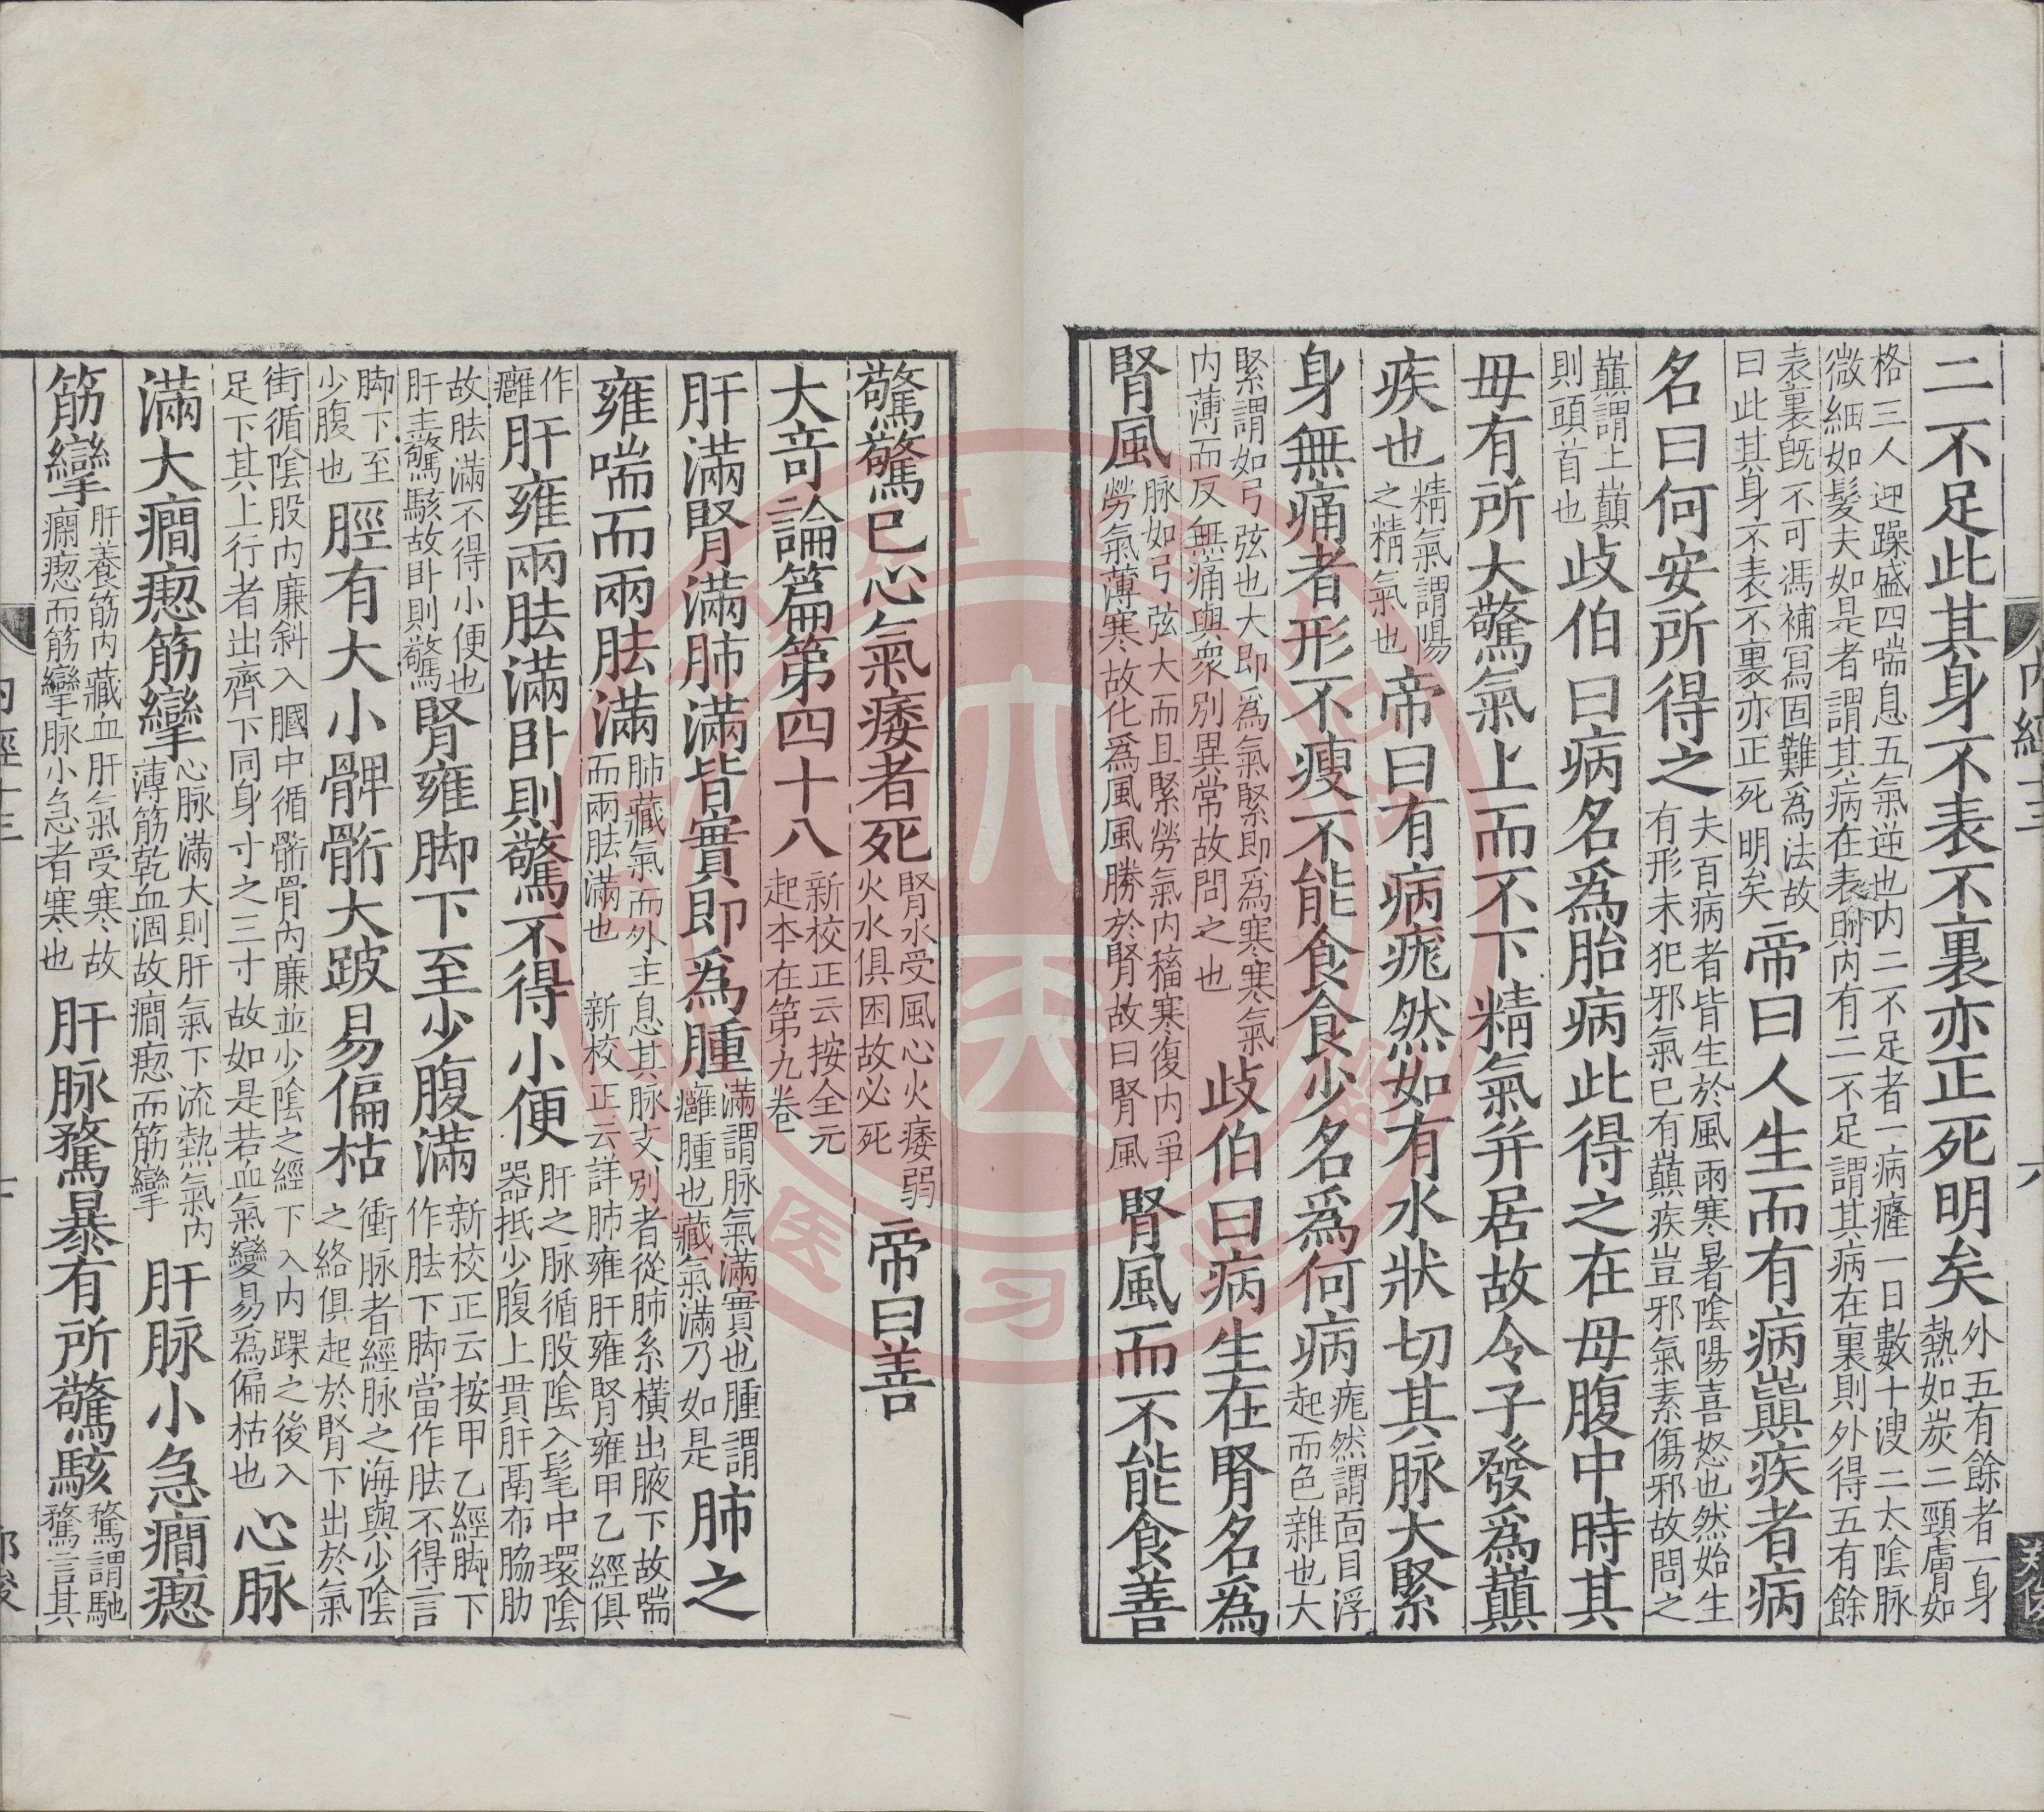 二不足此其身不表不裏亦正死明矣外五有餘者一身熱如炭二頸膚如
格三人迎躁盛四喘息五氣逆也内二不足者一病癃一日數十溲二太陰脉微細如髮夫如是者謂其病在表則内有二不足謂其病在裏則外得五有餘
表裏既不可馮補寫固難為法故曰此其身不表不裏亦正死明矣帝曰人生而有病巔疾者病
名曰何安所得之夫百病者皆生於風雨寒暑陰陽喜怒也然始生有形未犯邪氣已有巔疾豈邪氣素傷邪故問之
巔謂上巔則頭首也歧伯曰病名爲胎病此得之在母腹中時其
母有所大驚氣上而不下精氣并居故令子發爲巔
疾也精氣謂陽之精氣也帝曰有病痝然如有水狀切其脉大緊
身無痛者形不瘦不能食食少名爲何病痝然謂面目浮起而色雜也大
緊謂如弓弦也大即爲氣緊即爲寒寒氣内薄而反無痛與衆别異常故問之也歧伯曰病生在腎名爲
腎風脉如弓弦大而且緊勞氣内稸寒復内爭勞氣薄寒故化爲風風勝於腎故曰腎風腎風而不能食善
驚驚已心氣痿者死腎水受風心火痿弱火水俱困故必死帝曰善
大奇論篇第四十八新校正云按全元起本在第九卷
肝滿腎滿肺滿皆實即爲腫滿謂脉氣滿實也腫謂癰腫也藏氣滿乃如是肺之
雍喘而兩胠滿肺藏氣而外主息其脉支别者從肺系橫出腋下故喘而兩胠滿也 新校正云詳肺雍肝雍腎雍甲乙經俱
作癰肝雍兩胠滿卧則驚不得小便肝之脉循股陰入髦中環陰器抵少腹上貫肝鬲布脇肋
故胠滿不得小便也肝主驚駭故卧則驚腎雍脚下至少腹滿新校正云按甲乙經脚下作胠下脚當作胠不得言
脚下至少腹也脛有大小髀䯒大跛易偏枯衝脉者經脉之海與少陰之絡俱起於腎下出於氣
街循陰股内廉斜入膕中循䯒骨内廉並少陰之經下入内踝之後入足下其上行者出齊下同身寸之三寸故如是若血氣變易爲偏枯也心脉
滿大癎瘛筋攣心脉滿大則肝氣下流熱氣内薄筋乾血涸故癎瘛而筋攣肝脉小急癎瘛
筋攣肝養筋内藏血肝氣受寒故癎瘛而筋攣脉小急者寒也肝脉騖暴有所驚駭騖謂馳騖言其